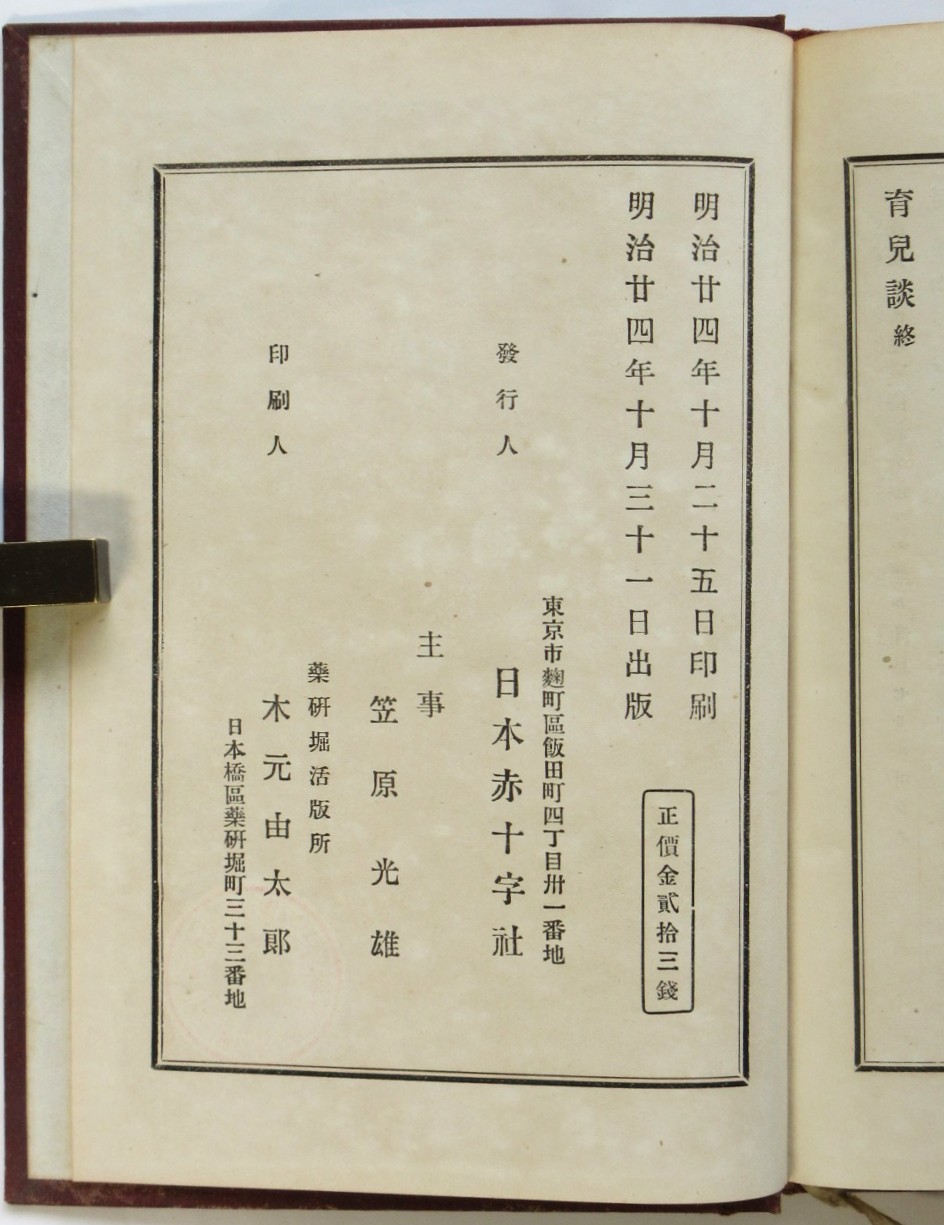 育兒談終
明治廿四年十月二十五日印刷
明治廿四年十月三十一日出版
正價金貳拾三錢
東京市麹町區飯田町四丁目卅一番地
發行人 日本赤十字社
主事
笠原光雄
藥硏堀活版所
印刷人 木元由太郎
日本橋區藥硏堀町三十三番地